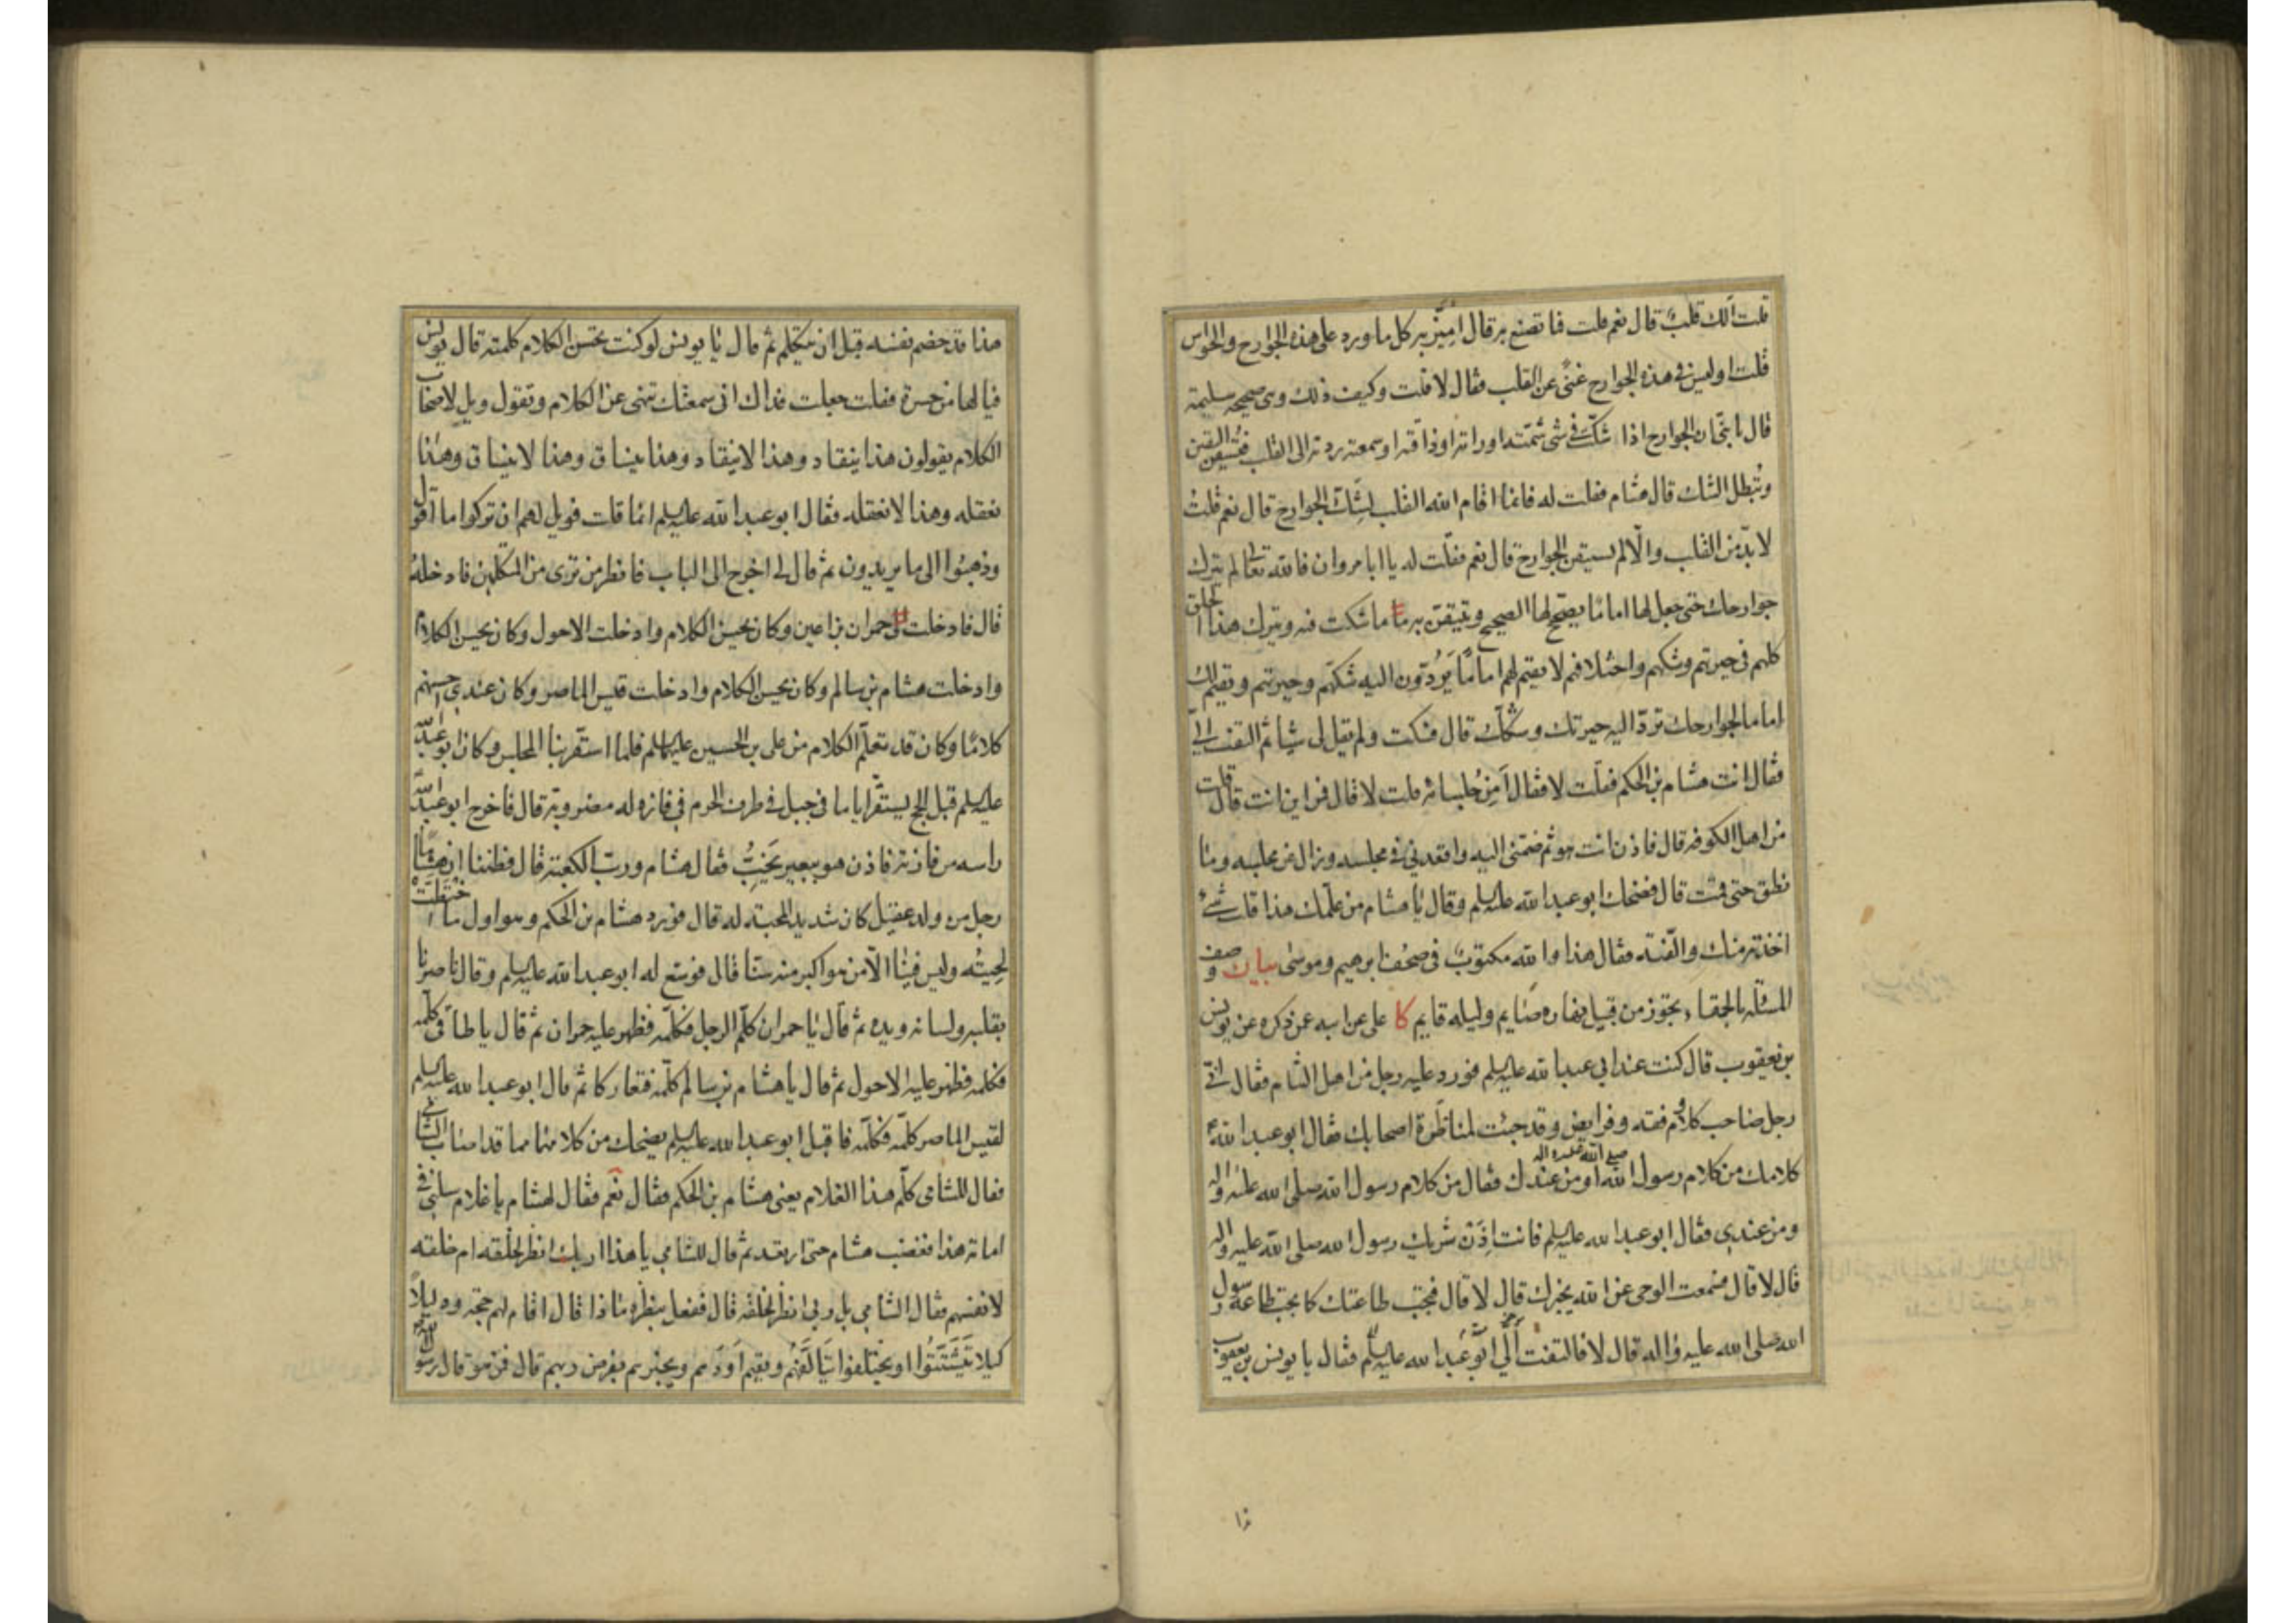 قلت الك قلب قال نعم قلت فما تصنع به قال اميّز به كل ما ورد على هذه الجوارح والحواس
قلت اوليس في هذه الجوارح غنى عن القلب فقال لا قلت وكيف ذلك وهى صحيحه سليمة
قال يا بنىّ ان الجوارح اذا شكّت في شى شمّته او راته او ذاقته او سمعته ردته الى القلب فتستيقن اليقين
وتُبطل الشك قال هشام فقلت له فانما اقام الله القلب لشكّ الجوارح قال نعم قلت
لا بدّ من القلب والّا لم تستيقن الجوارح قال نعم فقلت له يا ابا مروان فالله تعالى لم يترك
جوارحك حتى جعل لها اماما يصحّح لها الصحيح وتتيقّن به ما شكت فيه ويترك هذا الخلق
كلهم في حيرتهم وشكهم واختلافهم لا يقيم لهم اماما يَرُدّون اليه شكّهم وحيرتهم ويقيم لك
اماما لجوارحك تردّ اليه حيرتك وشكّك قال فسكت ولم يقل لى شيئا ثم التفت الىّ
فقال انت هشام بن الحكم فقلت لا فقال اَمِن جُلسائه قلت لا قال فمن اين انت قال قلت
من اهل الكوفه قال فاذن انت هو ثم ضمّنى اليه واقعدنى في مجلسه وزال عن مجلسه وما
نطق حتى قمت قال فضحك ابو عبد الله عليه السلم وقال يا هشام من علّمك هذا قلت شىء
اخذته منك والّفته فقال هذا والله مكتوبٌ فى صحُف ابرهيم وموسى بيان وصف
المسئلة بالحمقاء تجوّز من قبيل نهاره صايم وليله قايم كا على عن ابيه عمن ذكره عن يونس
بن يعقوب قال كنت عند ابى عبد الله عليه السلم فورد عليه رجل من اهل الشام فقال انى
رجل صاحب كلام وفقه وفرايض وقد جئت لمناظرة اصحابك فقال ابو عبد الله ع
كلامك من كلام رسول الله صلى الله عليه واله او من عندك فقال من كلام رسول الله صلى الله عليه واله
ومن عندى فقال ابو عبد الله عليه السلم فانت اِذَن شريك رسول الله صلى الله عليه واله
قال لا قال فسمعت الوحى عن الله يخبرك قال لا قال فتجب طاعتك كما يجب طاعة رسول
الله صلى الله عليه واله قال لا فالتفت اِلَىّ ابو عبد الله عليه السلم فقال يا يونس بن يعقوب
هذا قد خصم نفسه قبل ان يتكلم ثم قال يا يونس لو كنت تحسن الكلام كلمته قال يونس
فيالها من حسرة فقلت جعلت فداك انى سمعتك تنهى عن الكلام وتقول ويل لاصحاب
الكلام يقولون هذا ينقاد وهذا لا ينقاد وهذا ينساق وهذا لا ينساق وهذا
نعقله وهذا لا نعقله فقال ابو عبد الله عليه السلم انما قلت فويل لهم ان تركوا ما اقول
وذهبوا الى ما يريدون ثم قال لى اخرج الى الباب فانظر من ترى من المتكلمين فادخله
قال فادخلت حمران بن اعين وكان يحسن الكلام وادخلت الاحول وكان يحسن الكلام
وادخلت هشام بن سالم وكان يحسن الكلام وادخلت قيس الماصر وكان عندى احسنهم
كلامًا وكان قد تعلّم الكلام من على بن الحسين عليهما السلم فلما استقر بنا المجلس وكان ابو عبد الله
عليه السلم قبل الحج يستقرّ اياما فى جبل فى طرف الحرم فى فازه له مضروبة قال فاخرج ابو عبد الله
راسه من فازته فاذن هو ببعير يَخُبُّ فقال هشام وربّ الكعبة قال فظننا ان هشاما
رجل من ولد عقيل كان شديد المحبة له قال فورد هشام بن الحكم وهو اول ما اختطت
لحيته وليس فينا الّا من هو اكبر منه سنّا قال فوسّع له ابو عبد الله عليه السلم وقال ناصرنا
بقلبه ولسانه ويده ثم قال يا حمران كلّم الرجل فكلّمه فظهر عليه حمران ثم قال يا طاقى كلّمه
فكلمه فظهر عليه الاحول ثم قال يا هشام بن سالم كلّمه فتعاركا ثم قال ابو عبد الله عليه السلم
لقيس الماصر كلّمه فكلّمه فاقبل ابو عبد الله عليه السلم يضحك من كلامهما مما قد اصاب الشامى
فقال للشامى كلّم هذا الغلام يعنى هشام بن الحكم فقال نعم فقال لهشام يا غلام سلنى فى
امامة هذا فغضب هشام حتى ارتعد ثم قال للشامى يا هذا اربك انظر لخلقه ام خلقه
لانفسهم فقال الشامى بل ربى انظر لخلقه قال ففعل بنظره ماذا قال اقام لهم حجة ودليلًا
كيلا تَيَشَتَّتُوا او يختلفوا يَتَاَلَّفَهُم ويقيم اَوَدَهم ويخبرهم بفرض ربهم قال فمن هو قال رسول الله ص